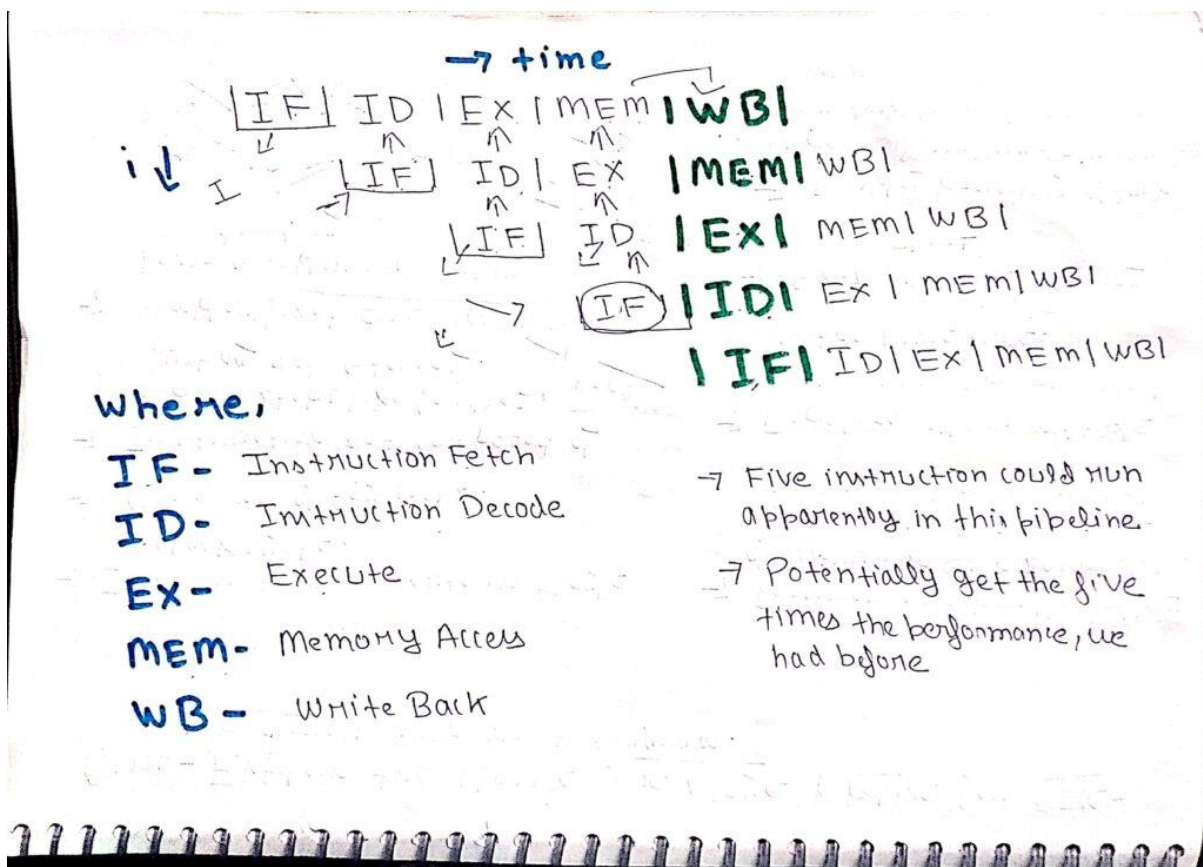 → time
|IF| ID | EX | MEM |WB|
i ↓ I |IF| ID | EX |MEM| WB|
|IF| ID |EX| MEM| WB|
→ |IF| |ID| EX | MEM|WB|
|IF| ID|EX|MEM|WB|
Where,
IF- Instruction Fetch
ID- Instruction Decode
EX- Execute
MEM- Memory Access
WB- Write Back
→ Five instruction could run
apparently in this pipeline
→ Potentially get the five
times the performance, we
had before